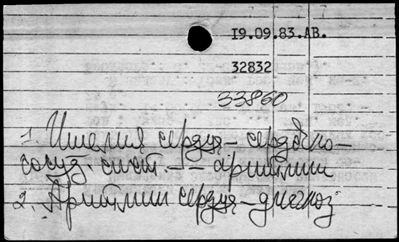 I9.09.83.АВ.
32832
33860
1. Ишемия сердца – сердечно-
сосуд. сист. – – аритмии
2. Аритмии сердца – диагноз